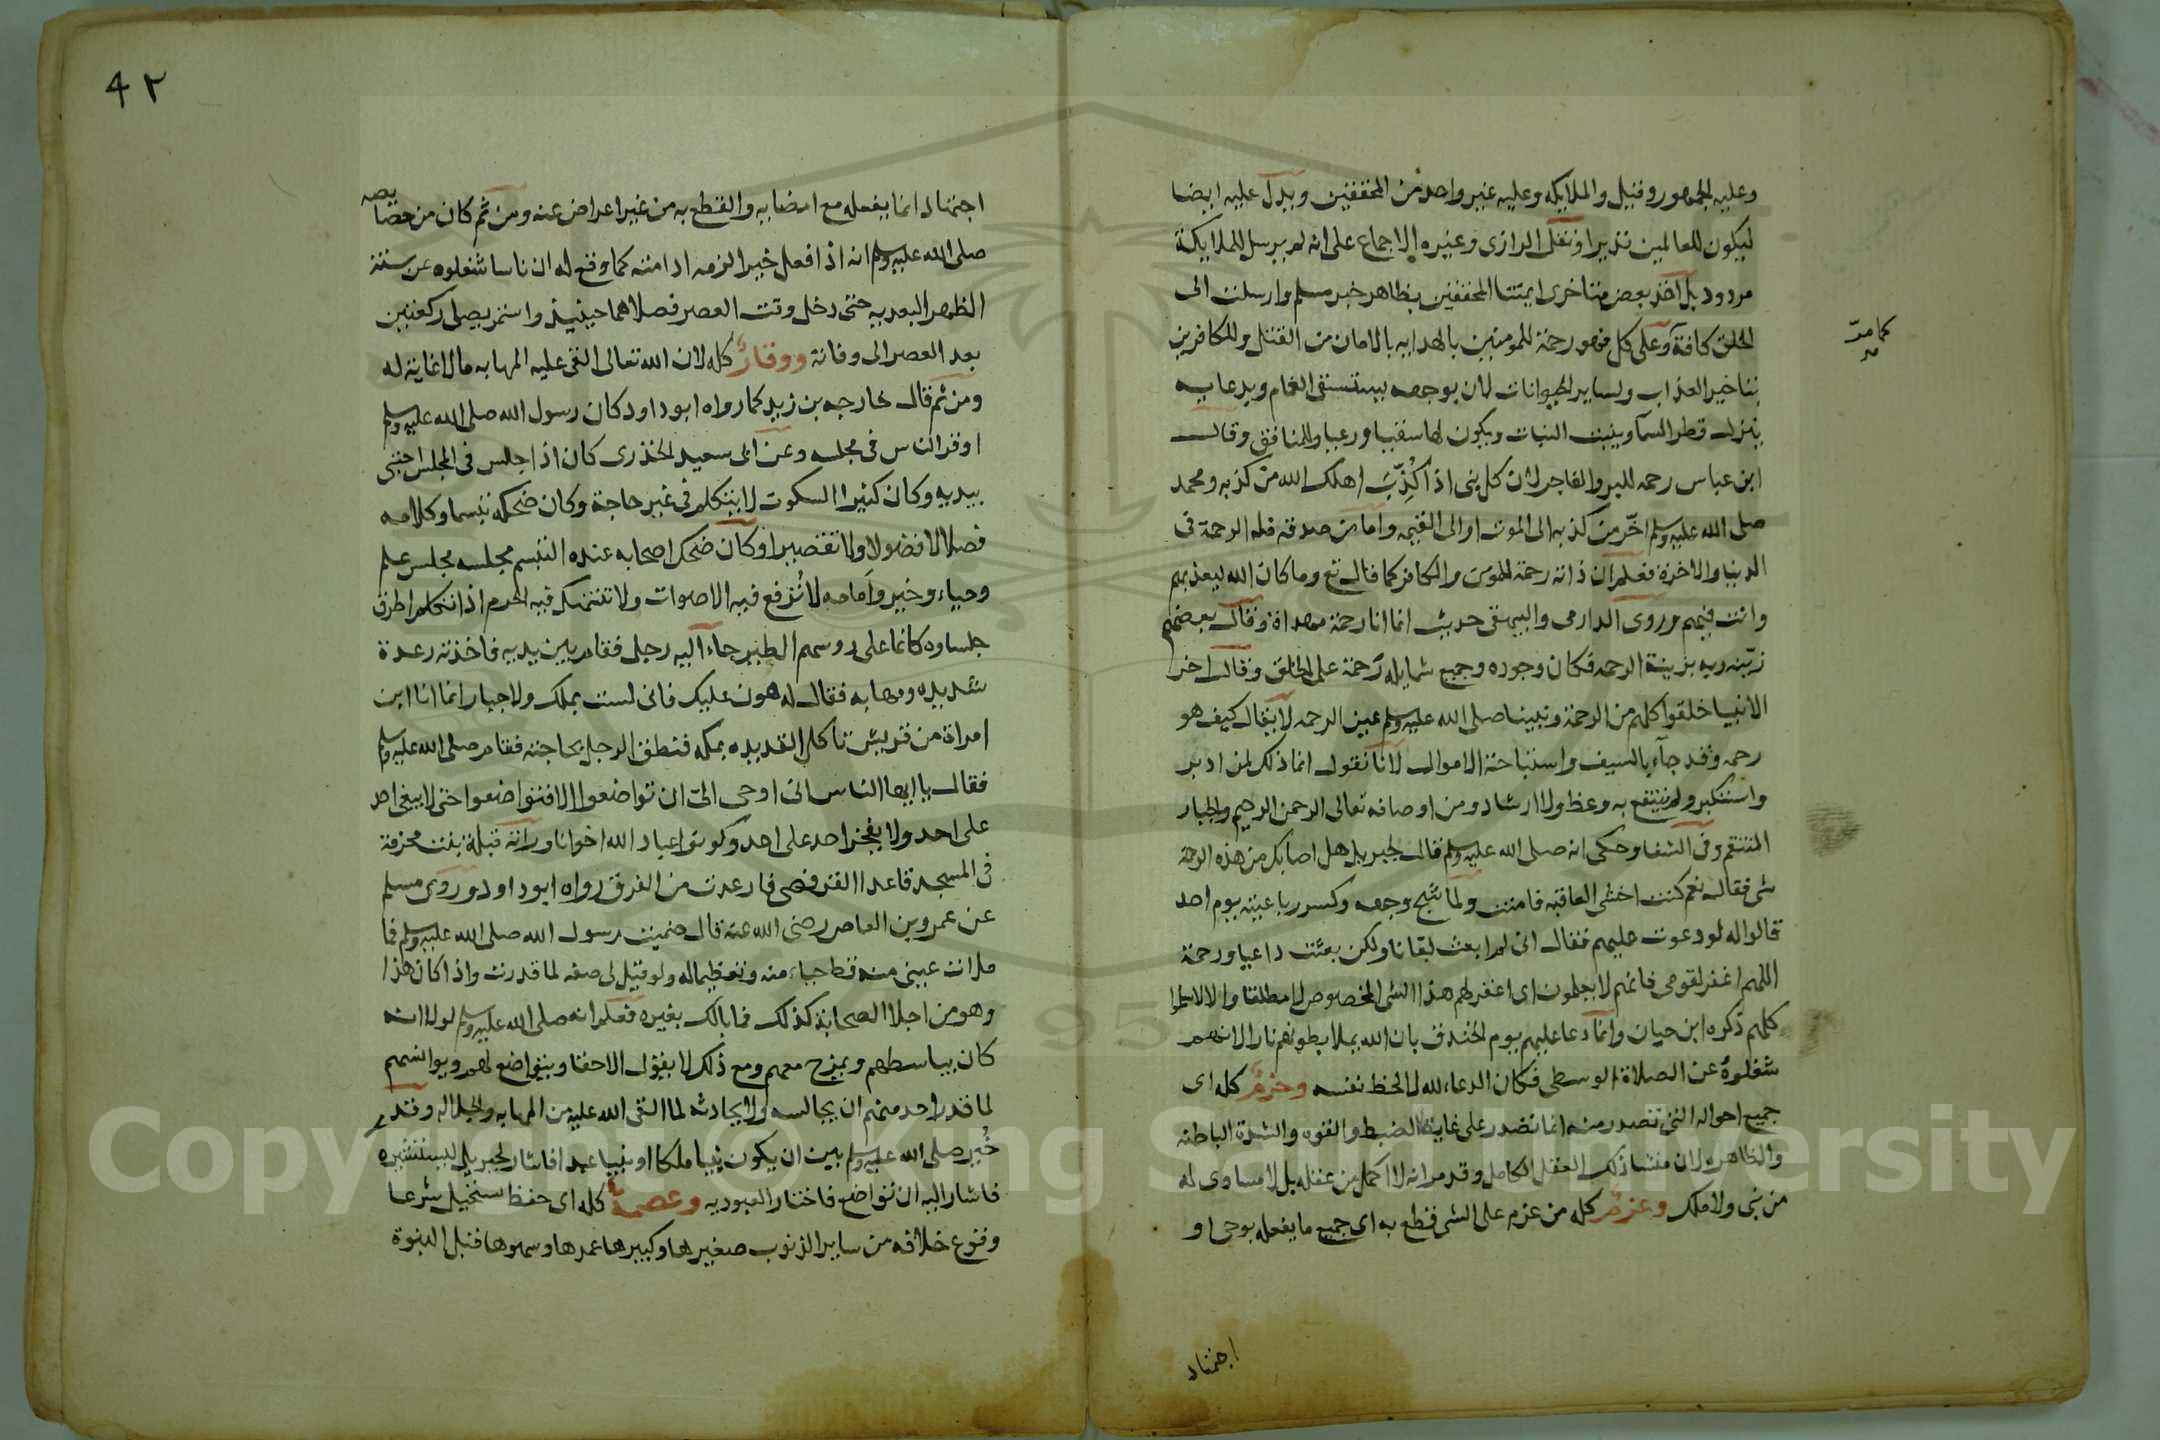 وعليه الجمهور وقيل والملايكه وعليه غير واحد من المحققين ويدل عليه ايضا
ليكون للعالمين نذيرا ونقل الرازى وغيره الاجماع على انه لم يرسل للملايكة
مردود بل اخذ بعض متاخرى ايمتنا المحققين بظاهر خبر مسلم وارسلت الى
الخلق كافة وعلى كل فهو رحمة للمومنين بالهدايه بالامان من القتل وللكافرين
كما مر
بتاخير العذاب ولساير الحيوانات لان بوجهه يستسقى الغمام وبدعايه
ينزل قطر السما وينبت النبات ويكون لها سقيا ورعيا وللمنافق وقال
ابن عباس رحمه للبر والفاجر لان كل نبى اذا كُذِّبَ اهلك الله من كذبه ومحمد
صلى الله عليه وسلم اخّر من كذبه الى الموت او الى القيمه واما من صدقه فله الرحمة فى
الدنيا والاخرة فعلم ان ذاته رحمة للمومن والكافر كما قال تع وما كان الله ليعذبهم
وانت فيهم وروى الدارمى والبيهقى حديث انما انا رحمة مهداة وقال بعضهم
زيّنه ربه بزينة الرحمه فكان وجوده وجميع شمايله رحمة على الخلق وقال اخر
الانبيا خلقوا كلهم من الرحمة ونبينا صلى الله عليه وسلم عين الرحمه لا يقال كيف هو
رحمه وقد جآء بالسيف واستباحة الاموال لانا نقول انما ذلك لمن ادبر
واستكبر ولم ينتفع به وعظ ولا ارشاد ومن اوصافه تعالى الرحمن الرحيم والجبار
المنتقم وفى الشفا وحكى انه صلى الله عليه وسلم قال لجبريل هل اصابك من هذه الرحمة
شى فقال نعم كنت اخشى العاقبه فامنت ولما شج وجهه وكسر رباعيته يوم احد
قالوا له لو دعوت عليهم فقال انى لم ابعث لعانا ولكن بعثت داعيا ورحمة
اللهم اغفر لقومى فانهم لا يعلمون اى اغفر لهم هذا الشى المخصوص لا مطلقا والا لاسلموا
كلهم ذكره ابن حبان وانما دعا عليهم يوم الخندق بان الله يملا بطونهم نارا لانهم
شغلوه عن الصلاة الوسطى فكان الدعاء لله لا لحظ نفسه وحزم كله اى
جميع احواله التى تصدر منه انما تصدر على غاية الضبط والقوه والشدة الباطنه
والظاهرة لان منشا ذلك العقل الكامل وقد مر انه لا اكمل من عقله بل لا مساوى له
من نبى ولا ملك وعزم كله من عزم على الشى قطع به اى جميع ما يفعله بوحى او
اجتهاد
٤٢
اجتهاد انما يفعله مع امضايه والقطع به من غير اعراض عنه ومن ثم كان من خصايصه
صلى الله عليه وسلم انه اذا فعل خيرا لزمه ادامته كما وقع له ان ناسا شغلوه عن سنة
الظهر البعديه حتى دخل وقت العصر فصلاهما حينيذ واستمر يصلى ركعتين
بعد العصر الى وفاته ووقار كله لان الله تعالى القى عليه المهابه مالا غاية له
ومن ثم قال خارجه بن زيد كما رواه ابو داود كان رسول الله صلى الله عليه وسلم
اوقر الناس فى مجلسه وعن ابى سعيد الخذرى كان اذا جلس فى المجلس احتبى
بيديه وكان كثيرا السكوت لا يتكلم فى غير حاجة وكان ضحكه تبسما وكلامه
فصلا لا فضولا ولا تقصيرا وكان ضحك اصحابه عنده التبسم مجلسه مجلس علم
وحياء وخير وامامه لا تُرفع فيه الاصوات ولا تنتهك فيه الحرم اذا تكلم اطرق
جلساوه كانما على روسهم الطير جاء اليه رجل فقام بين يديه فاخذته رعدة
شديده ومهابه فقال له هون عليك فانى لست بملك ولا جبار انما انا ابن
امراة من قريش تاكل القديده بمكه فنطق الرجل بحاجته فقام صلى الله عليه وسلم
فقال يا ايها الناس انى اوحى الىّ ان تواضعوا الا فتواضعوا حتى لا يبغى احد
على احد ولا يفخر احد على احد وكونوا عباد الله اخوانا وراته قيلة بنت مخرمة
فى المسجد قاعدا القرفصى فارعدت من الفرق رواه ابو داود وروى مسلم
عن عمرو بن العاص رضى الله عنه قال صحبت رسول الله صلى الله عليه وسلم فما
ملات عينى منه قط حياء منه وتعظيما له ولو قيل لى صفه لما قدرت واذا كان هذا
وهو من اجلا الصحابة كذلك فما بالك بغيره فعلم انه صلى الله عليه وسلم لولا انه
كان يباسطهم ويمزح معهم ومع ذلك لا يقول الا حقا ويتواضع لهم ويوانسهم
لما قدر احد منهم ان يجالسه ولا يحادثه لما القى الله عليه من المهابه والجلاله وقد
خُير صلى الله عليه وسلم بين ان يكون نبيا ملكا او نبيا عبدا فاشار لجبريل ليستشيره
فاشار اليه ان تواضع فاختار العبوديه وعصمة كله اى حفظ يستحيل شرعا
وقوع خلافه من ساير الذنوب صغيرها وكبيرها عمدها وسهوها قبل النبوة
Copyright © King Saud University